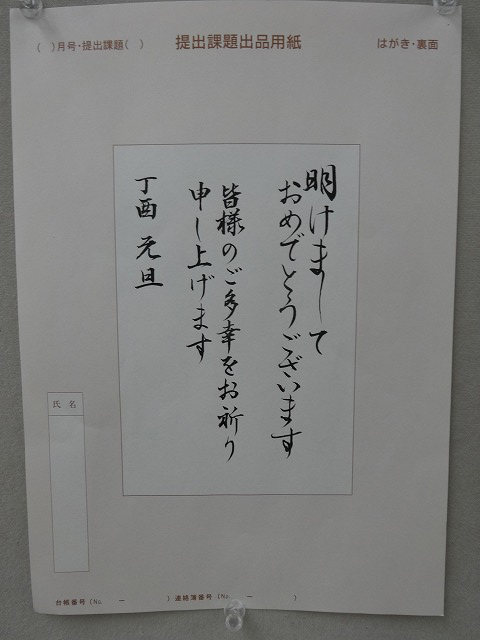 （　）月号・提出課題（　）　提出課題出品用紙　はがき・裏面
明けまして
おめでとうございます
皆様のご多幸をお祈り
申し上げます
丁酉 元旦
氏名
台帳番号（No.　－　）連絡簿番号（No.　－　）